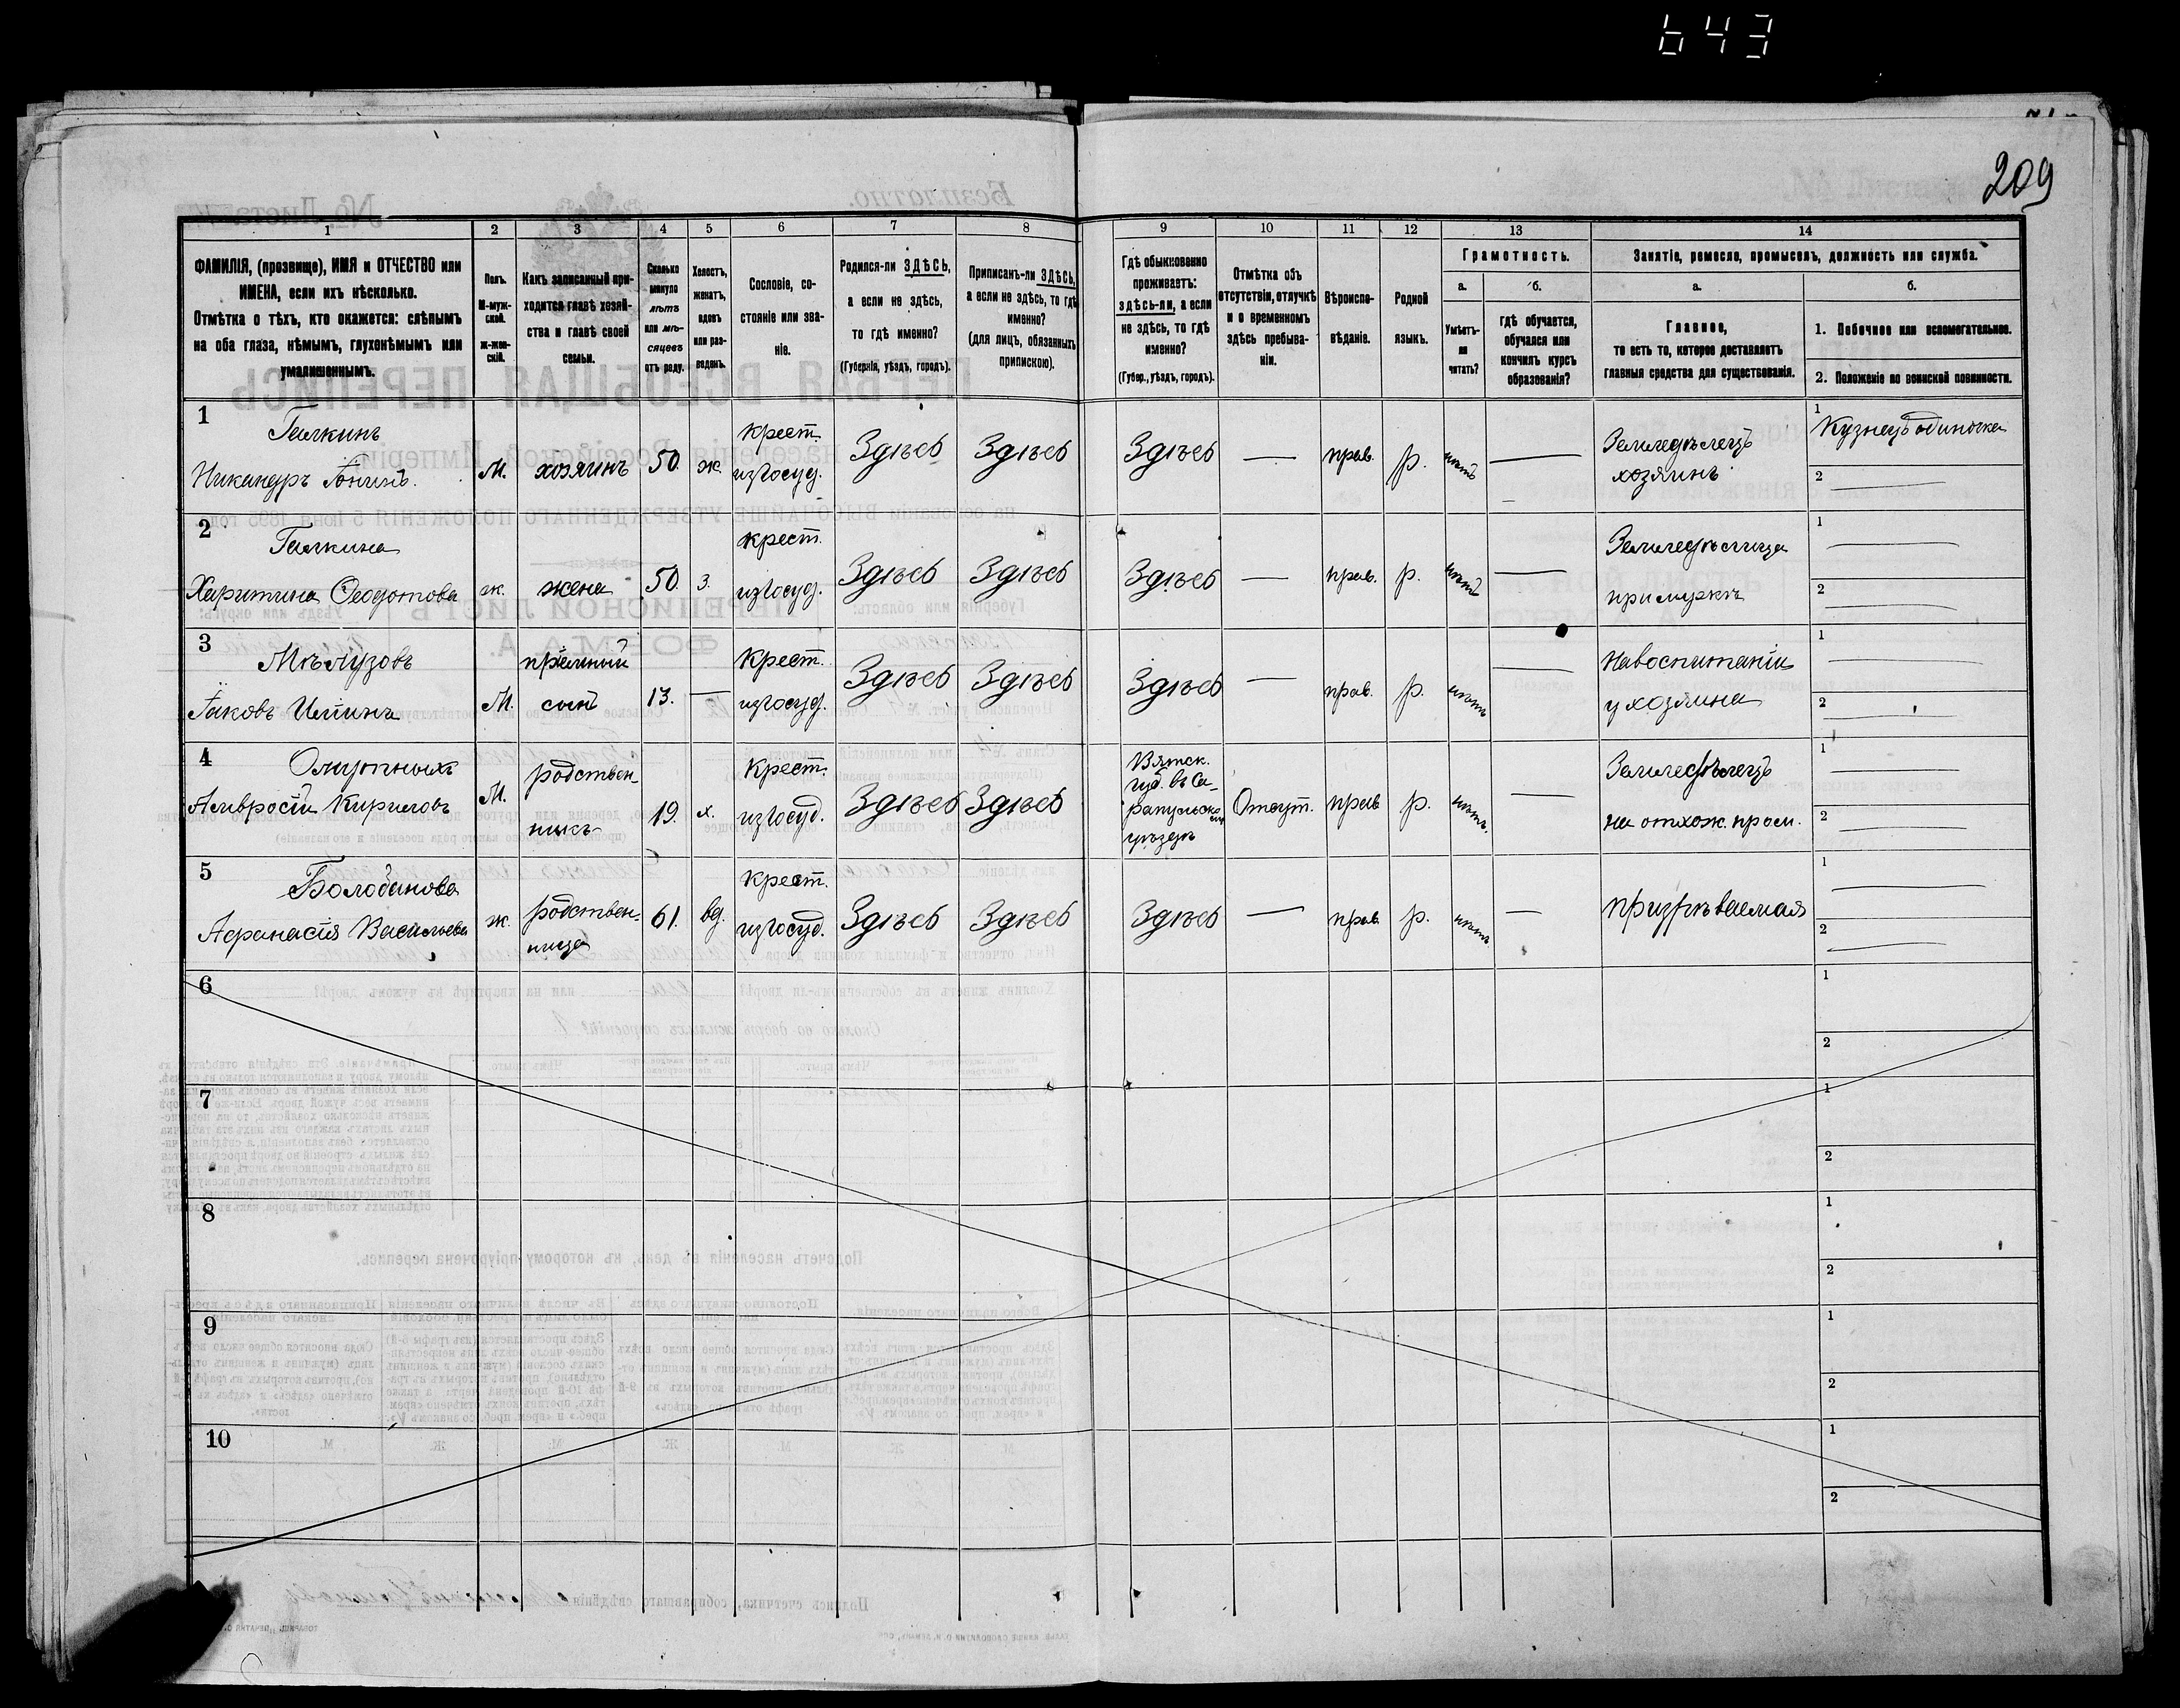 643
209
1 2 3 4 5 6 7 8 9 10 11 12 13 14
ФАМИЛІЯ, (прозвище), ИМЯ и ОТЧЕСТВО или
ИМЕНА, если ихъ нѣсколько.
Отмѣтка о тѣхъ, кто окажется: слѣпымъ
на оба глаза, нѣмымъ, глухонѣмымъ или
умалишеннымъ.
Полъ.
М-муж-
ской.
ж-жен-
скій.
Какъ записанный при-
ходится главѣ хозяй-
ства и главѣ своей
семьи.
Сколько
минуло
лѣтъ
или мѣ-
сяцевъ
отъ роду.
Холостъ,
женатъ,
вдовъ
или раз-
веденъ.
Сословіе, со-
стояніе или зва-
ніе.
Родился-ли ЗДѢСЬ,
а если не здѣсь,
то гдѣ именно?
(Губернія, уѣздъ, городъ).
Приписанъ-ли ЗДѢСЬ,
а если не здѣсь, то гдѣ
именно?
(для лицъ, обязанныхъ
припискою).
Гдѣ обыкновенно
проживаетъ:
здѣсь-ли, а если
не здѣсь, то гдѣ
именно?
(Губер., уѣздъ, городъ).
Отмѣтка объ
отсутствіи, отлучкѣ
и о временномъ
здѣсь пребыва-
ніи.
Вѣроиспо-
вѣданіе.
Родной
языкъ.
Грамотность.
а.
Умѣетъ-
ли
читать?
б.
гдѣ обучается,
обучался или
кончилъ курсъ
образованія?
Занятіе, ремесло, промыселъ, должность или служба.
а.
Главное,
то есть то, которое доставляетъ
главныя средства для существованія.
б.
1. Побочное или вспомогательное.
2. Положеніе по воинской повинности.
1
Галкинъ
Никандръ
М.
хозяинъ
50.
ж.
Крест.
изъ госуд.
Здѣсь
Здѣсь
Здѣсь
—
прав.
р.
нѣтъ
—
Земледѣлецъ
хозяинъ
1
Кузнецъ одиночка
2 —
2
Галкина
Харитина Ѳеодотова
ж.
жена
50.
з.
Крест.
изъ госуд.
Здѣсь
Здѣсь
Здѣсь
—
прав.
р.
нѣтъ
—
Земледѣлица
при мужѣ
1 —
2 —
3
Яковъ
М.
пріемный
сынъ
13.
—
Крест.
изъ госуд.
Здѣсь
Здѣсь
Здѣсь
—
прав.
р.
нѣтъ
—
На воспитаніи
у хозяина
1 —
2 —
4
Амвросій Кириловъ
М.
родствен-
никъ
19.
х.
Крест.
изъ госуд.
Здѣсь
Здѣсь
Вятск.
губ. въ Са-
рапульскомъ
уѣздѣ
Отсут.
прав
р.
нѣтъ.
—
Земледѣлецъ
на отхож. пром.
1 —
2 —
5
Болобанова
Афанасія Васильева
ж.
родствен-
ница
61.
вд.
Крест.
изъ госуд.
Здѣсь
Здѣсь
Здѣсь
—
прав.
р.
нѣтъ.
—
призрѣваемая
1 —
2 —
6
1
2
7
1
2
8
1
2
9
1
2
10
1
2